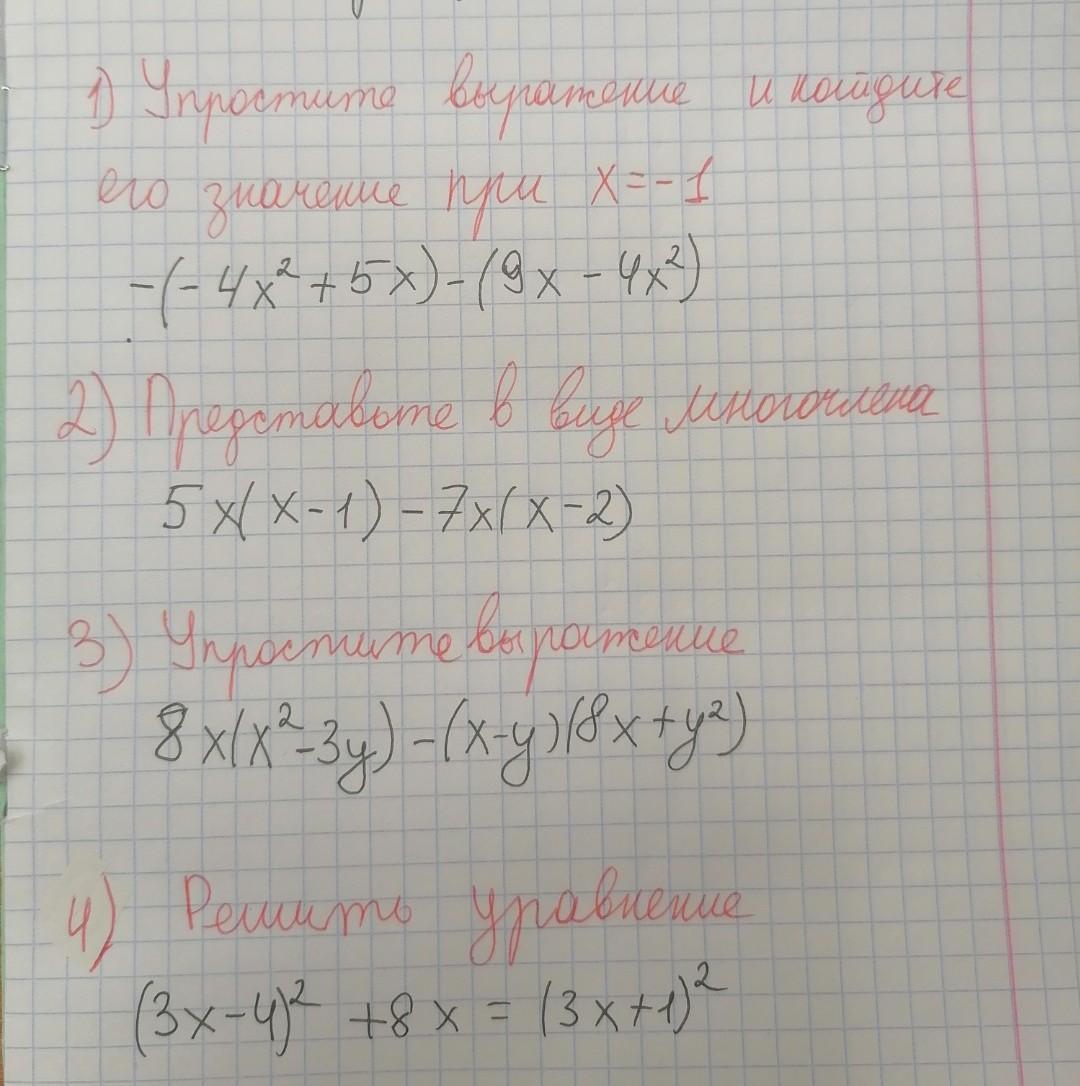 1) Упростите выражение и найдите
его значение при x=-1
-(-4x²+5x)-(9x-4x²)
2) Представьте в виде многочлена
5x(x-1)-7x(x-2)
3) Упростите выражение
8x(x²-3y)-(x-y)(8x+y²)
4) Решить уравнение
(3x-4)²+8x=(3x+1)²